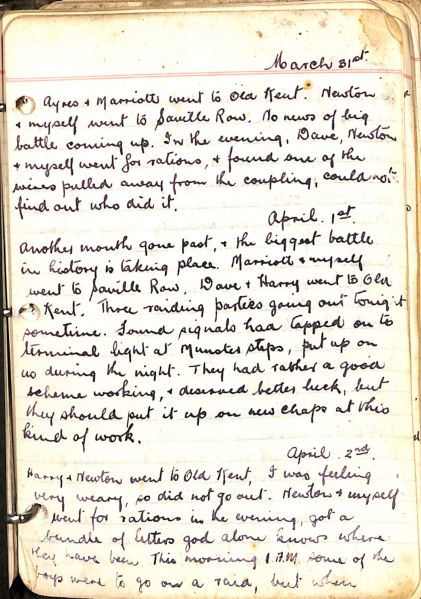 March 31st.
Ayres & Marriott went to Old Kent. Newton
& myself went to Saville Row. No news of big
battle coming up. In the evening, Dave, Newton
& myself went for rations, & found one of the
wires pulled away from the coupling, could not
find out who did it.
April. 1st.
Another month gone past, & the biggest battle
in history is taking place. Marriott & myself
went to Saville Row, Dave & Harry went to Old
Kent. Three raiding parties going out tonight
sometime. Found signals had tapped on to
terminal light at steps, put up on
us during the night. They had rather a good
scheme working, & deserved better luck, but
they should put it up on new chaps at this
kind of work.
April. 2nd.
Harry & Newton went to Old Kent, I was feeling
very weary, so did not go out. Newton & myself
went for rations in the evening, got a
bundle of letters god alone knows where
they have been. This morning 1 A.M. some of the
boys were to go on a raid, but when